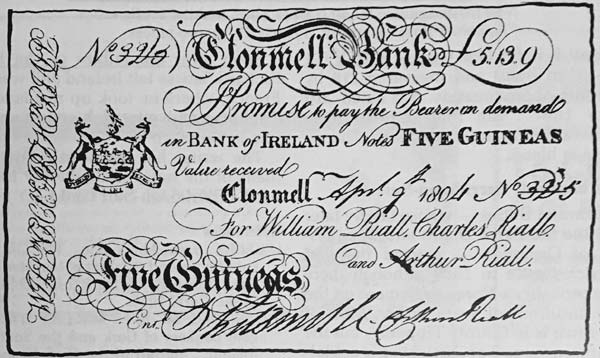 No 325 Clonmell Bank £5.13.9
I Promise to pay the Bearer on demand
in BANK of IRELAND Notes FIVE GUINEAS
Value received
Clonmell Apr. 9th 1804 No 325
For William Riall, Charles Riall
and Arthur Riall.
Five Guineas
Entd.
Arthur Riall